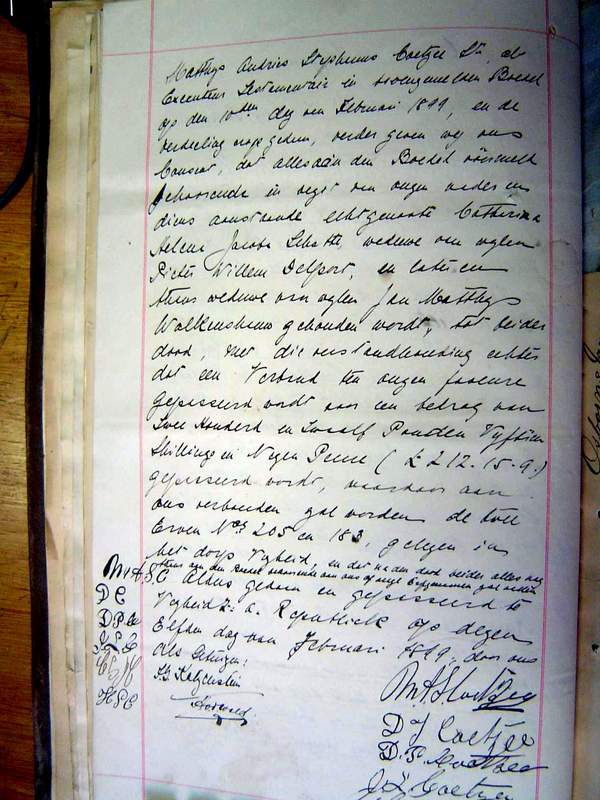 Matthys Andries Stephanus Coetzee Sr., als
Executeur Testamentair in voorgemelden Boedel
op den 10den dag van Februari 1899, en de
verdeeling erop gedaan, verder geven wij ons
Consent, dat alles aan den Boedel vermeld
behoorende in bezit van onzen vader en
diens aanstaande echtgenoote Catharina
Helena Jacoba Schutte, weduwe van wijlen
Pieter Willem Delport, en laatst en
thans weduwe van wijlen Jan Matthys
gehouden wordt, tot beider
dood, met die verstandhouding echter
dat een Verband ten onzen faveure
gepasseerd wordt voor een bedrag van
Twee Honderd en Twaalf Ponden Vyftien
Shillings en Negen Pence (£212.15.9.)
gepasseerd wordt, waarvoor aan
ons verbonden zal worden de twee
Erven Nos 205 en 183, gelegen in
het dorp Vryheid, en dat na den dood beider alles nog
thans aan den Boedel aan ons of onze Erfgenamen zal
M.A.S.C Aldus gedaan en gepasseerd te
D C Vryheid Z: A. Republiek op dezen
D P C Elfden dag van Februari 1899, door ons
Als Getuigen:
M A S Coetzee
H S C
D J Coetzee
D. P.
J. Coetzee